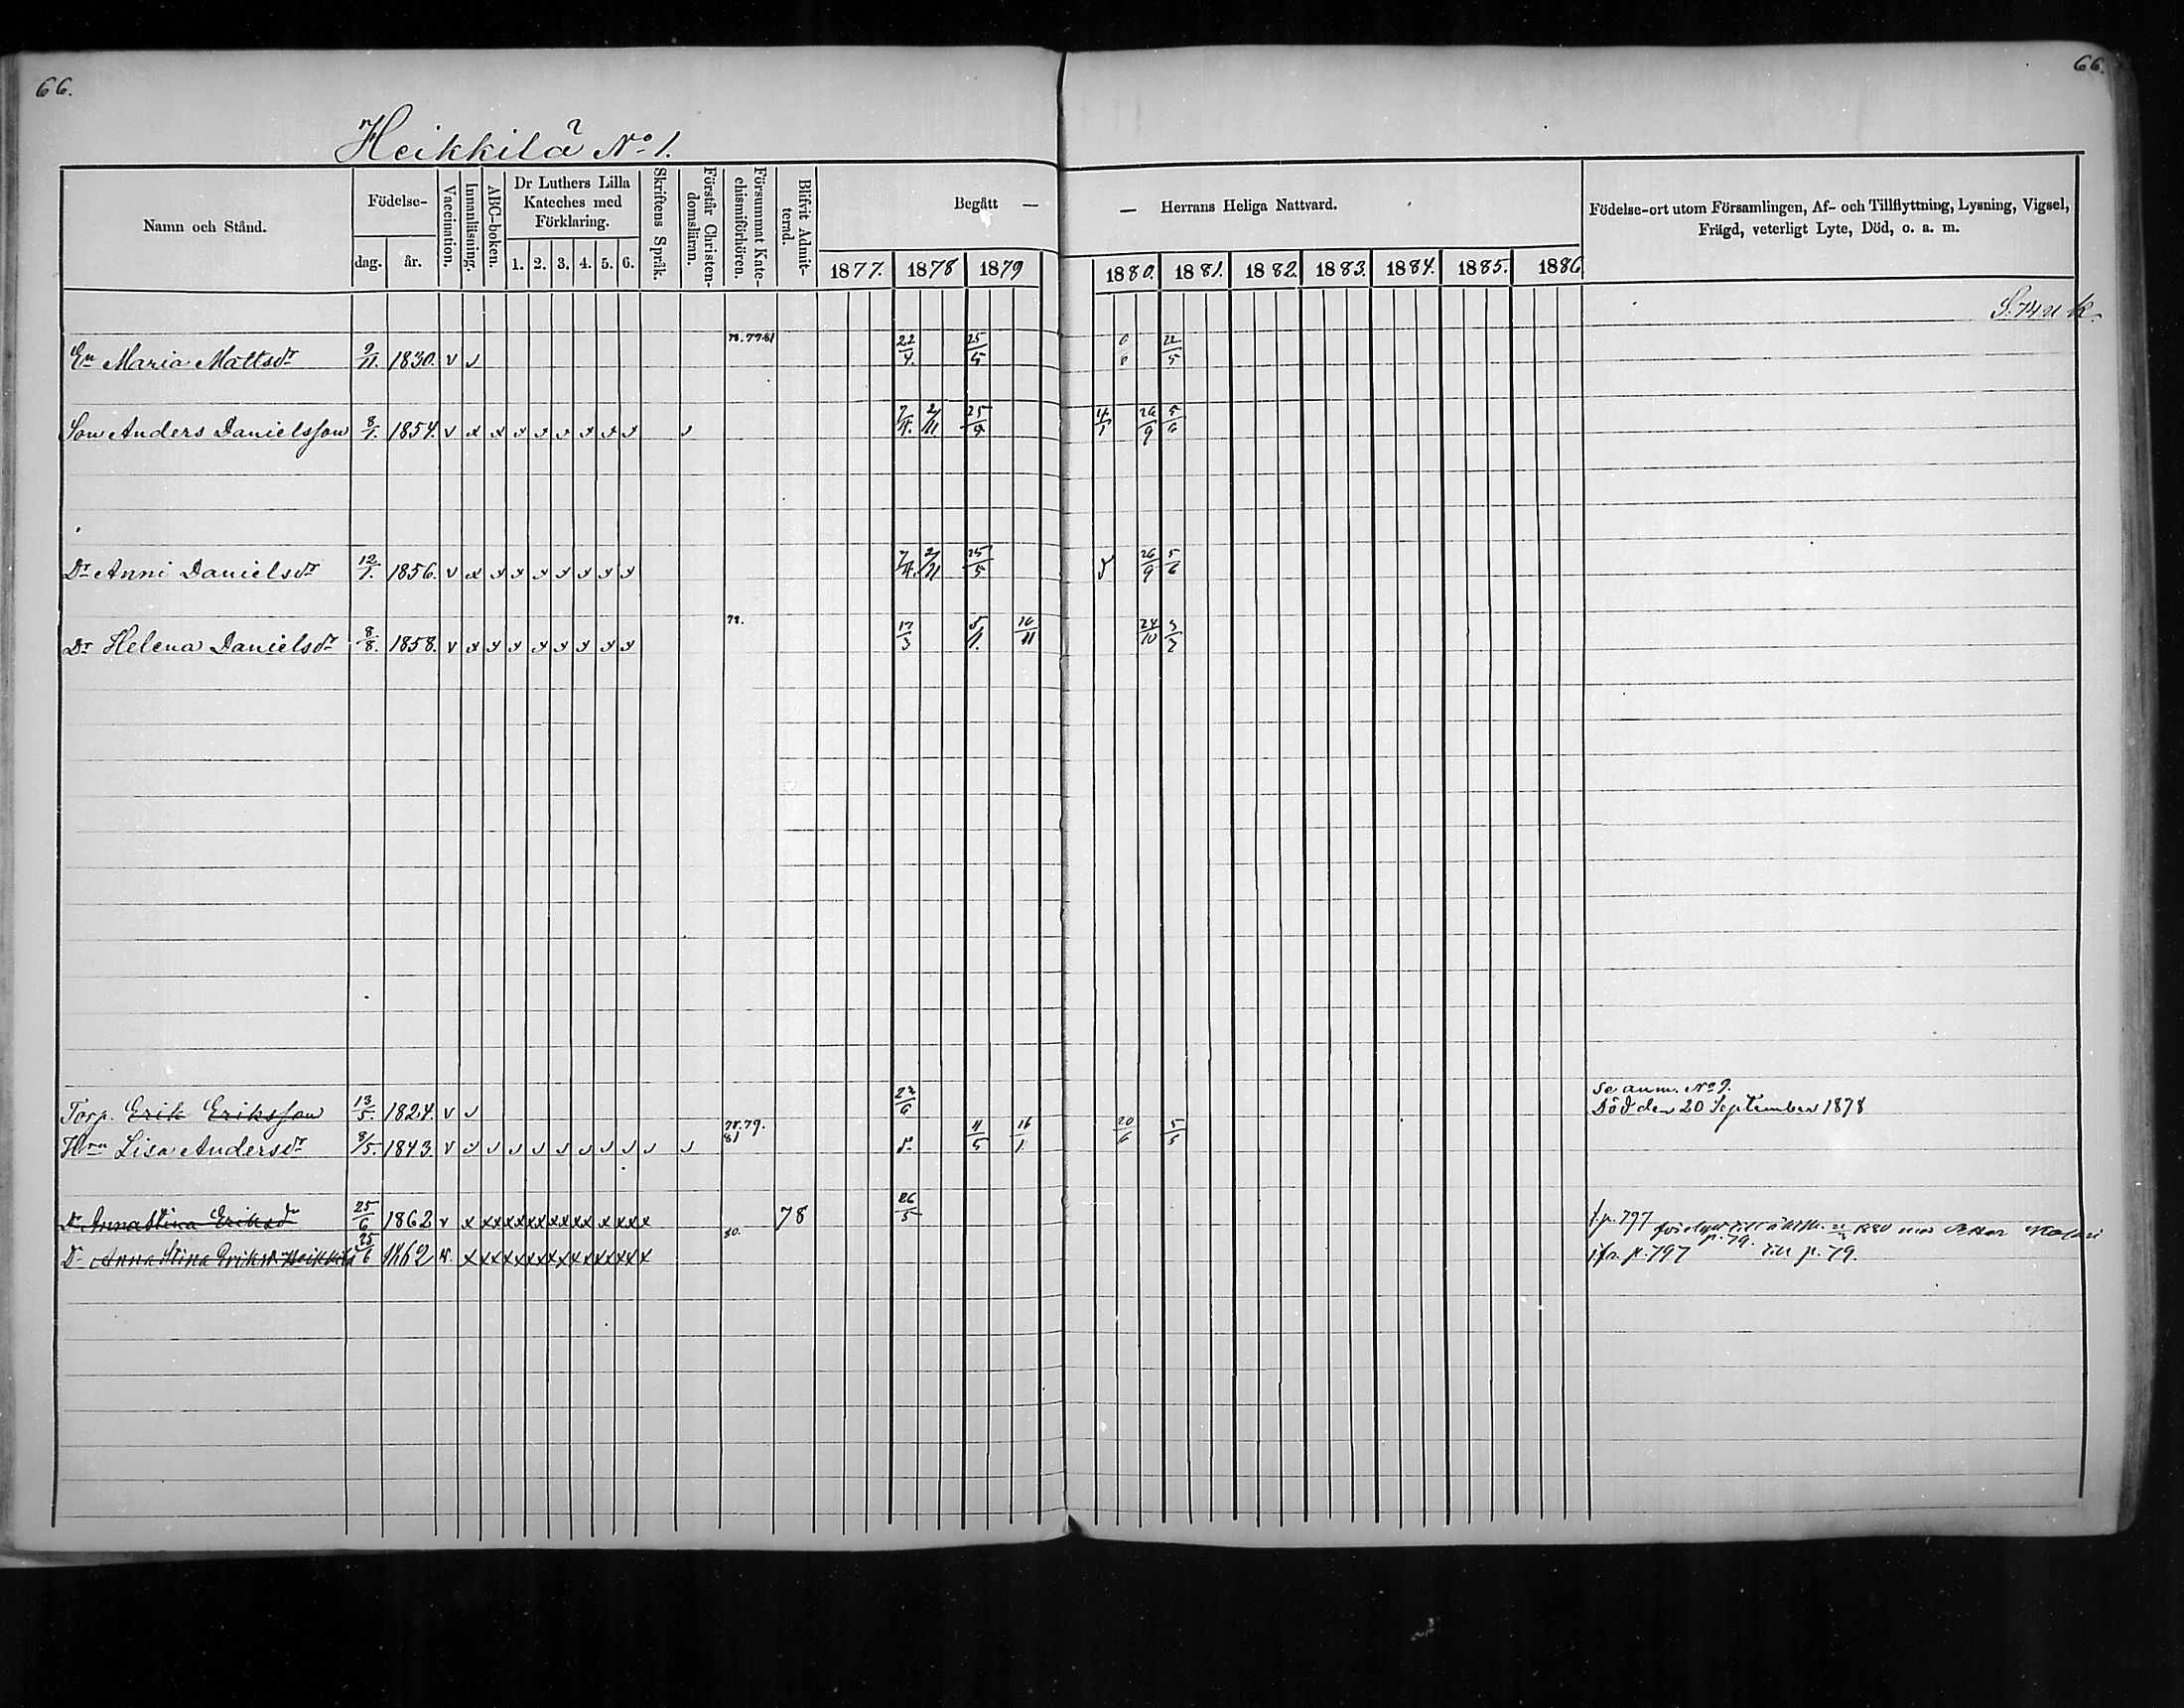 66.
66.
Heikkilä No 1.
Namn och Stånd.
Födelse-
dag. år.
Vaccination.
Innanläsning.
ABC-boken.
Dr Luthers Lilla
Kateches med
Förklaring.
1. 2. 3. 4. 5. 6.
Skriftens Språk.
Förstår Christen-
domsläran.
Försummat Kate-
chismiförhören.
Blifvit Admit-
terad.
Begått —
— Herrans Heliga Nattvard.
1877. 1878 1879
1880. 1881. 1882. 1883. 1884. 1885. 1886
Födelse-ort utom Församlingen, Af- och Tillflyttning, Lysning, Vigsel,
Frägd, veterligt Lyte, Död, o. a. m.
En Maria Mattsdr 9/11. 1830. v 22/4. 25/5 22/5
Son Anders Danielsson 8/1. 1854. v x x 7/4. 2/11 25/5 26/9 5/6
Dr Anni Danielsdr 12/1. 1856. v x 7/4. 2/11 25/5 26/9 5/6
78.
Dr Helena Danielsdr 8/8. 1858. v x 17/3 5/1. 16/11 24/10 3/2
se anm. No 9.
Torp. Erik Eriksson 13/5. 1824. v Död den 20 September 1878
78. 79.
81
Hru Lisa Andersdr 8/5. 1843. v 11/5 16/1 20/6 5/5
Dr Anna Stina Eriksdr 25/6 1862 v x xxxxxxxxxx x xxx 78 26/5 f. p. 797 1880 med
p. 79.
80.
Dr Anna Stina Eriksdr Heikkilä 25/6 1862 v. xxxxxxxxxxxxxxx ifr. p. 797 till p. 79.